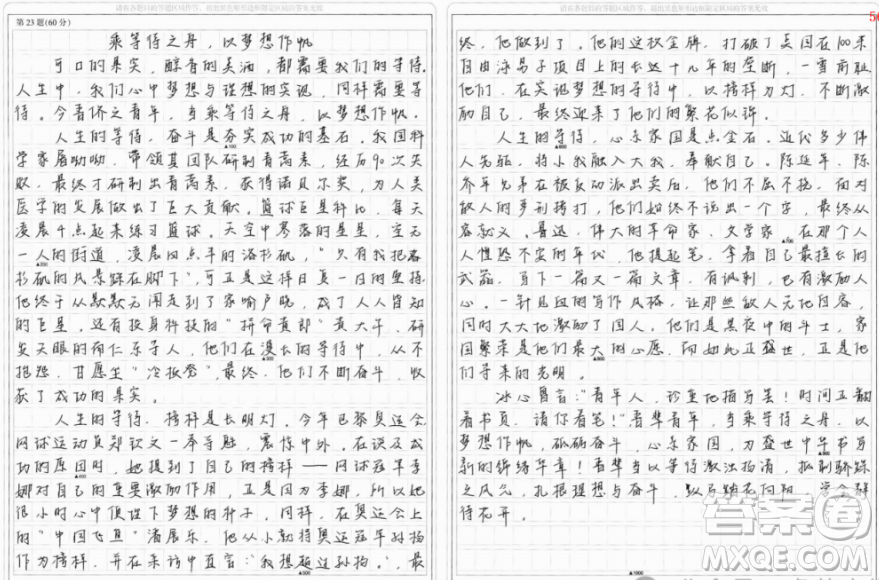 请在各题目的答题区域内作答，超出黑色矩形边框限定区域的答案无效
第 23 题(60 分)
乘等待之舟，以梦想作帆
可口的果实，醇香的美酒，都需要我们的等待。
人生中，我们心中梦想与理想的实现，同样需要等
待。今香侪之青年，当乘等待之舟，以梦想作帆。
人生的等待，奋斗是夯实成功的基石。我国科
学家屠呦呦，带领其团队研制青蒿素，经历90次失
败，最终才研制出青蒿素，获得诺贝尔奖，为人类
医学的发展做出了巨大贡献。篮球巨星科比，每天
凌晨4点起来练习篮球。天空中寥落的星星，空无
一人的街道，凌晨四点半的洛杉矶，"只有我把洛
杉矶的风景踩在脚下"，可正是这样日复一日的坚持，
他终于从默默无闻走到了家喻户晓，成了人人皆知
的巨星。还有投身科技的"拼命黄郎"黄大年，研
究天眼的南仁东等人，他们在漫长的等待中，从不
抱怨，甘愿坐"冷板凳"，最终，他们不断奋斗，收
获了成功的果实。
人生的等待，榜样是长明灯。今年巴黎奥运会
网球运动员郑钦文一举夺魁，震惊中外。在谈及成
功的原因时，她提到了自己的榜样——网球冠军李
娜对自己的重要激励作用，正是因为李娜，所以她
很小时心中便埋下梦想的种子。同样，在奥运会上
的"中国飞鱼"潘展乐，他从小就将奥运冠军孙杨
作为榜样，并在采访中直言："我想超过孙杨。"，最
请在各题目的答题区域内作答，超出黑色矩形边框限定区域的答案无效
终，他做到了，他的这枚金牌，打破了美国在100米
自由泳男子项目上的长达十几年的垄断，一雪前耻。
他们，在实现梦想的等待中，以榜样为灯，不断激
励自己，最终迎来了他们的繁花似锦。
人生的等待，心系家国是点金石。近代多少伟
人先驱，将小我融入大我，奉献自己。陈延年、陈
乔年兄弟在被反动派出卖后，他们不屈不挠，面对
敌人的严刑拷打，他们始终不说出一个字，最终从
容就义。鲁迅，伟大的革命家、文学家，在那个人
人惶恐不安的年代，他提起笔，拿着自己最擅长的
武器，写下一篇又一篇文章，有讽刺，也有激励人
心。一针见血的写作风格，让那些敌人无地自容，
同时大大地激励了国人。他们是黑夜中的斗士，家
国繁荣是他们最大的心愿，而如此正盛世，正是他
们寻来的光明。
冰心曾言："青年人，珍重地描写罢！时间正翻
着书页，请你着笔！"吾辈青年，当乘等待之舟，以
梦想作帆，砥砺奋斗，心系家国，为盛世中华书写
新的锦绣华章！吾辈当以等待激浊扬清，抵制骄躁
之风气，扎根理想与奋斗，
待花开。
MXQE.COM